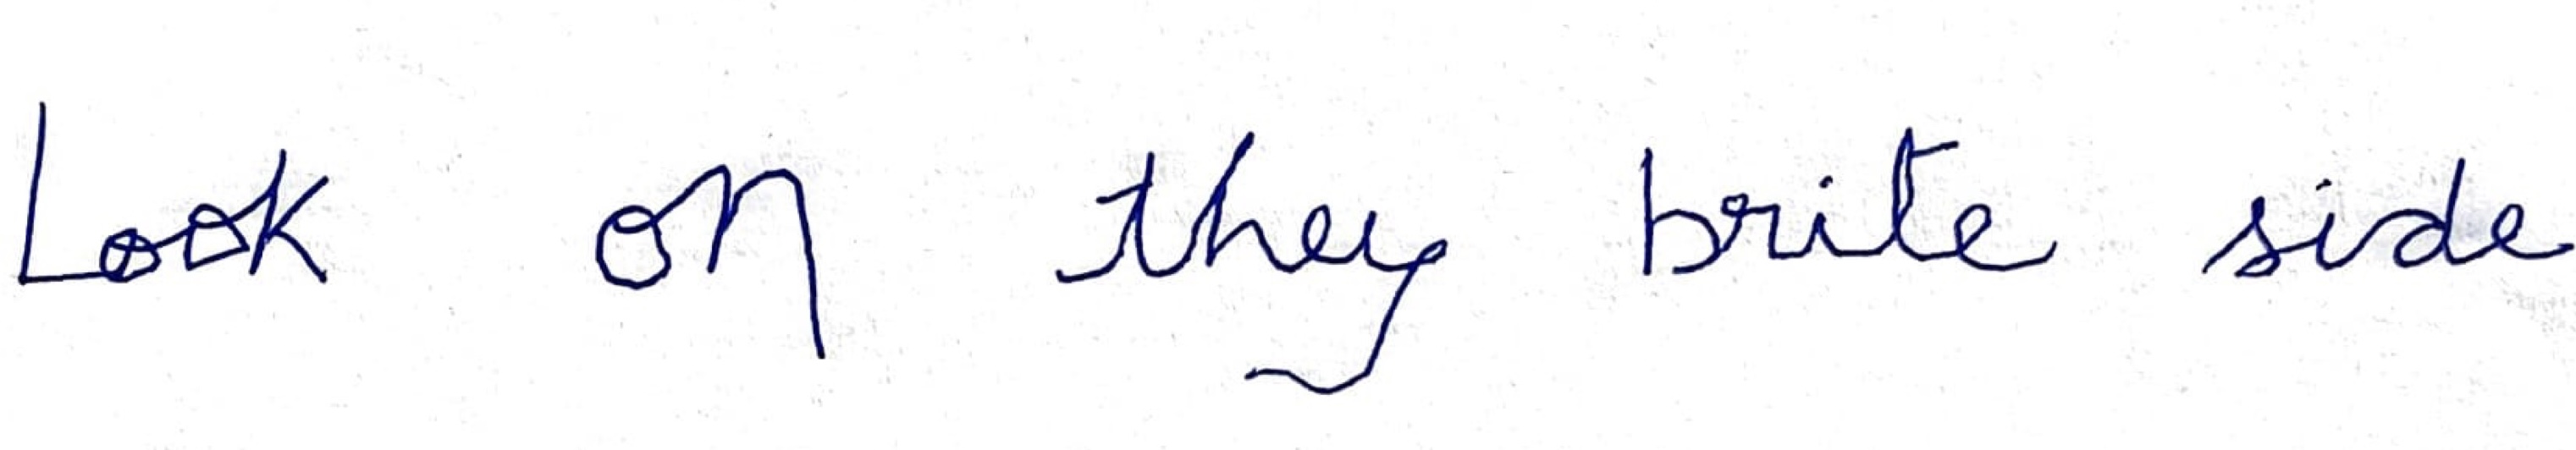 Look on they brite side